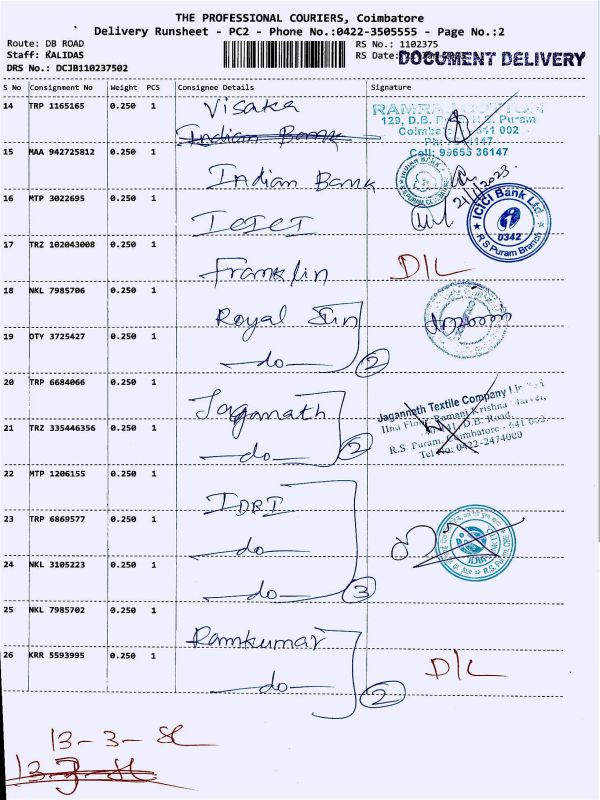 THE PROFESSIONAL COURIERS, Coimbatore
Delivery Runsheet - PC2 - Phone No.:0422-3505555 - Page No.:2
Route: DB ROAD
RS No.: 1102375
Staff: KALIDAS
RS Date:
DOCUMENT DELIVERY
DRS No.: DCJB110237502
S No Consignment No Weight PCS Consignee Details Signature
14 TRP 1165165 0.250 1 Visaka
Indian Bank
RAMRAJ COTTON
129, D.B. R.S. Puram
641 002
Cell: 99655 36147
15 MAA 942725812 0.250 1 Indian Bank
INDIAN BANK
21/1/2023
16 MTP 3022695 0.250 1 ICICI
ICICI Bank Ltd.
0342
R S Puram Branch
17 TRZ 102043008 0.250 1 Franklin D/L
18 NKL 7985706 0.250 1 Royal Sun
19 OTY 3725427 0.250 1 do 2
20 TRP 6684066 0.250 1 Jaganath
Jaganneth Textile Company
Ramani Krishna
D.B. Road,
R.S. Puram, Coimbatore - 641 002.
Tel No: 0422-2474000
21 TRZ 335446356 0.250 1 do 2
22 MTP 1206155 0.250 1 IDBI
23 TRP 6869577 0.250 1 do
R.S. Puram, CBE
24 NKL 3105223 0.250 1 do 3
25 NKL 7985702 0.250 1 Ramkumar
26 KRR 5593995 0.250 1 do 2 D/L
13-3-SL